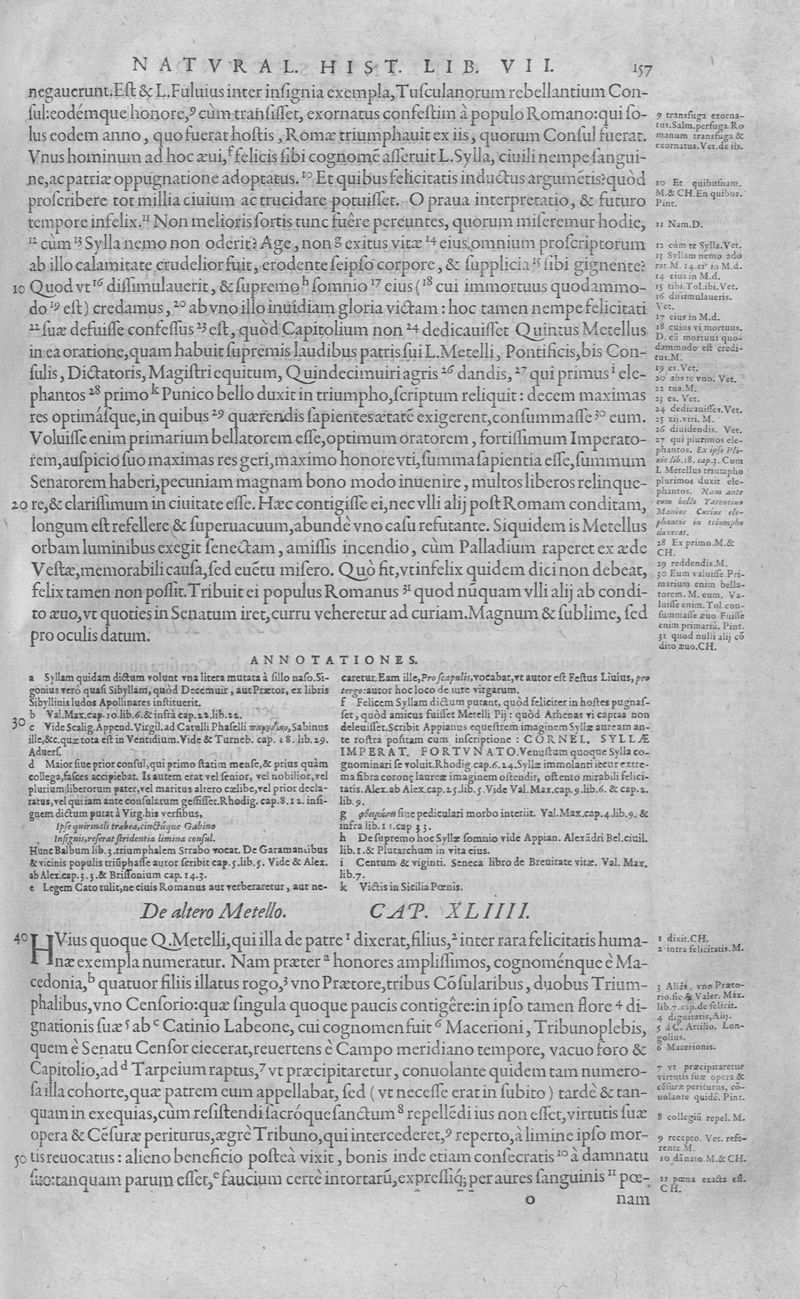 NATVRAL. HIST. LIB. VII. 157
negauerunt. Est & L. Fuluius inter insignia exempla, Tusculanorum rebellantium Con-
sul: eodémque honore,⁹ cùm transisset, exornatus confestim à populo Romano: qui so-
lus eodem anno, quo fuerat hostis, Romæ triumphauit ex iis, quorum Consul fuerat.
Vnus hominum ad hoc æui,ᶠ felicis sibi cognomē asseruit L. Sylla, ciuili nempe sangui-
ne, ac patriæ oppugnatione adoptatus.¹⁰ Et quibus felicitatis inductus argumētis? quòd
proscribere tot millia ciuium ac trucidare potuisset. O praua interpretatio, & futuro
tempore infelix.¹¹ Non melioris sortis tunc fuêre pereuntes, quorum miseremur hodie,
¹² cùm ¹³ Sylla nemo non oderit? Age, non ᵍ exitus vitæ ¹⁴ eius, omnium proscriptorum
ab illo calamitate crudelior fuit, erodente seipso corpore, & supplicia ¹⁵ sibi gignente?
10 Quod vt ¹⁶ dissimulauerit, & supremo ʰ somnio ¹⁷ eius (¹⁸ cui immortuus quodammo-
do ¹⁹ est) credamus, ²⁰ ab vno illo inuidiam gloria victam: hoc tamen nempe felicitati
²² suæ defuisse confessus ²³ est, quòd Capitolium non ²⁴ dedicauisset. Quintus Metellus
in ea oratione, quam habuit supremis laudibus patris sui L. Metelli, Pontificis, bis Con-
sulis, Dictatoris, Magistri equitum, Quindecimuiri agris ²⁶ dandis, ²⁷ qui primus ⁱ ele-
phantos ²⁸ primo ᵏ Punico bello duxit in triumpho, scriptum reliquit: decem maximas
res optimásque, in quibus ²⁹ quærendis sapientes ætatē exigerent, consummasse ³⁰ eum.
Voluisse enim primarium bellatorem esse, optimum oratorem, fortissimum Imperato-
rem, auspicio suo maximas res geri, maximo honore vti, summa sapientia esse, summum
Senatorem haberi, pecuniam magnam bono modo inuenire, multos liberos relinque-
20 re, & clarissimum in ciuitate esse. Hæc contigisse ei, nec vlli alij post Romam conditam,
longum est refellere & superuacuum, abundè vno casu refutante. Siquidem is Metellus
orbam luminibus exegit senectam, amissis incendio, cùm Palladium raperet ex æde
Vestæ, memorabili causa, sed euētu misero. Quò fit, vt infelix quidem dici non debeat,
felix tamen non possit. Tribuit ei populus Romanus ³¹ quod nūquam vlli alij ab condi-
to æuo, vt quoties in Senatum iret, curru veheretur ad curiam. Magnum & sublime, sed
pro oculis datum.
9 transfuga exorna-
tus. Salm. perfuga. Ro
manum transfuga &
exornatus. Vet. de iis.
10 Et quibusnam.
M. & CH. En quibus.
Pint.
11 Nam. D.
12 cùm te Sylla. Vet.
13 Syllam nemo ado
rat. M. 14. ei' in M. d.
14 eius in M. d.
15 tibi. Tol. ibi. Vet.
16 dissimulaueris.
Vet.
17 eius in M. d.
18 cuius vi mortuus.
D. cū mortuus quo-
dammodo est credi-
tus. M.
19 es. Vet.
20 abs te vno. Vet.
22 tua. M.
23 es. Vet.
24 dedicauisses. Vet.
25 xij. viri. M.
26 diuidendis. Vet.
27 qui plurimos ele-
phantos. Ex ipso Pli-
nio lib. 18. cap. 3. Cum
L Metellus triumpho
plurimos duxit ele-
phantos. Nam ante
eum bello Tarentino
Manius Curius ele-
phantos in triumpho
duxerat.
28 Ex primo. M. &
CH.
29 reddendis. M.
30 Eum valuisse Pri-
marium enim bella-
torem. M. eum. Va-
luisse enim. Tol. con-
summasse æuo Fuisse
enim primariū. Pint.
31 quod nulli alij cō
dito æuo. CH.
ANNOTATIONES.
a Syllam quidam dictum volunt vna litera mutata à sillo naso. Si-
gonius verò quasi Sibyllam, quòd Decemuir, aut Prætor, ex libris
Sibyllinis ludos Apollinares instituerit.
b Val. Max. cap. 10. lib. 6. & infrà cap. 22. lib. 22.
30 c Vide Scalig. Append. Virgil. ad Catulli Phaselli Sabinus
ille, &c. quæ tota est in Ventidium. Vide & Turneb. cap. 18. lib. 29.
Aduers.
d Maior siue prior consul, qui primo statim mense, & prius quàm
collega, fasces accipiebat. Is autem erat vel senior, vel nobilior, vel
plurium liberorum pater, vel maritus altero cælibe, vel prior decla-
ratus, vel qui iam ante consulatum gessisset. Rhodig. cap. 8. 12. insi-
gnem dictum putat à Virg. his versibus,
Ipse quirinali trabea, cinctúque Gabino
Insignis, reserat stridentia limina consul.
Hunc Balbum lib. 3. triumphalem Strabo vocat. De Garamantibus
& vicinis populis triūphasse autor scribit cap. 5. lib. 5. Vide & Alex.
ab Alex. cap. 3. 3. & Brissonium cap. 14. 3.
e Legem Cato tulit, ne ciuis Romanus aut verberaretur, aut ne-
caretur. Eam ille, Pro scapulis, vocabat, vt autor est Festus Liuius, pro
tergo: autor hoc loco de iure virgarum.
f Felicem Syllam dictum putant, quòd feliciter in hostes pugnas-
set, quòd amicus fuisset Metelli Pij: quòd Athenas vi captas non
deleuisset. Scribit Appianus equestrem imaginem Syllæ auream an-
te rostra positam cum inscriptione: CORNEL. SYLLÆ
IMPERAT. FORTVNATO. Venustum quoque Sylla co-
gnominari se voluit. Rhodig. cap. 6. 24. Syllæ immolanti iecur extre-
ma fibra coronę laureæ imaginem ostendit, ostento mirabili felici-
tatis. Alex. ab Alex. cap. 25. lib. 5. Vide Val. Max. cap. 9. lib. 6. & cap. 2.
lib. 9.
g siue pediculari morbo interiit. Val. Max. cap. 4. lib. 9. &
infra lib. 11. cap 33.
h De supremo hoc Syllæ somnio vide Appian. Alexādri Bel. ciuil.
lib. 1. & Plutarchum in vita eius.
i Centum & viginti. Seneca libro de Breuitate vitæ. Val. Max.
lib. 7.
k Victis in Sicilia Pœnis.
De altero Metello. CAP. XLIIII.
40 HVius quoque Q. Metelli, qui illa de patre ¹ dixerat, filius, ² inter rara felicitatis huma-
næ exempla numeratur. Nam præter ᵃ honores amplissimos, cognoménque è Ma-
cedonia, ᵇ quatuor filiis illatus rogo, ³ vno Prætore, tribus Cōsularibus, duobus Trium-
phalibus, vno Censorio: quæ singula quoque paucis contigêre: in ipso tamen flore ⁴ di-
gnationis suæ ⁵ ab ᶜ Catinio Labeone, cui cognomen fuit ⁶ Macerioni, Tribuno plebis,
quem è Senatu Censor eiecerat, reuertens è Campo meridiano tempore, vacuo foro &
Capitolio, ad ᵈ Tarpeium raptus, ⁷ vt præcipitaretur, conuolante quidem tam numero-
sa illa cohorte, quæ patrem eum appellabat, sed (vt necesse erat in subito) tardè & tan-
quam in exequias, cùm resistendi sacróque sanctum ⁸ repellēdi ius non esset, virtutis suæ
opera & Cēsuræ periturus, ægrè Tribuno, qui intercederet, ⁹ reperto, à limine ipso mor-
50 tis reuocatus: alieno beneficio posteà vixit, bonis inde etiam consecratis ¹⁰ à damnatu
suo: tanquam parum esset, ᵉ faucium certè intortarū, expressiq; per aures sanguinis ¹¹ pœ-
o nam
1 dixit. CH.
2 intra felicitatis. M.
3 Aliàs, vno Præto-
rio. sic & Valer. Max.
lib. 7. cap. de felicit.
4 dignitatis, Alij.
5 à C. Attilio. Lon-
golius.
6 Macerionis.
7 vt præcipitaretur
virtutis suæ opera &
cēsuræ periturus, cō-
uolante quidē. Pint.
8 collegiū repel. M.
9 recepto. Vet. refo-
rente. M.
10 dānato M. & CH.
11 pœna exacta est.
CH.